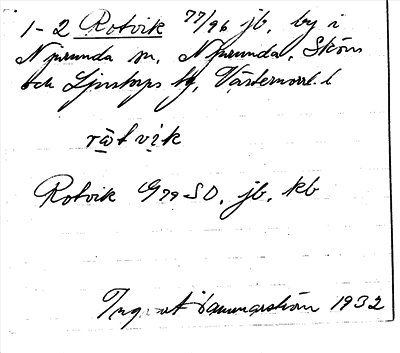 1-2 Rotvik 77/96 jb, by i
Njurunda sn, Njurunda, Sköns
och Ljustorps tg, Västernorrl. l
rötvik
Rotvik G79-SO, jb, kb
Hammarström 1932